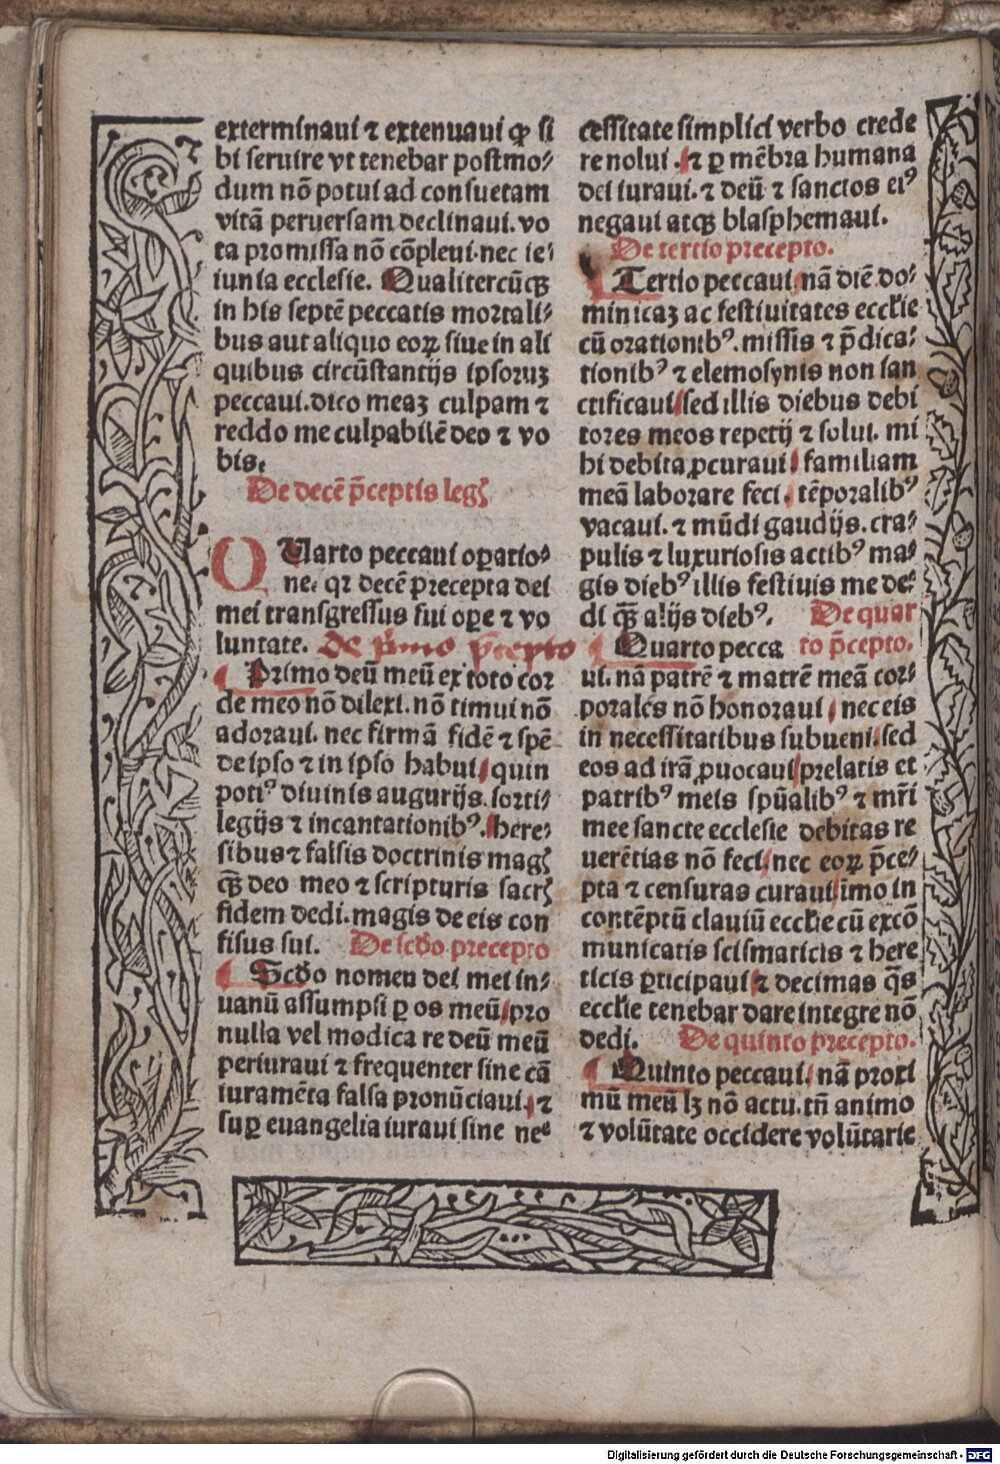 exterminaui ⁊ extenuaui qꝛ si
bi seruire vt tenebar postmo⸗
dum nō potui ad consuetam
vitā peruersam declinaui. vo
ta promissa nō cōpleui. nec ie⸗
iunia ecclesie. Qualitercūqꝫ
in his septē peccatis mortali⸗
bus aut aliquo eoꝝ siue in ali
quibus circūstantijs ipsoruꝫ
peccaui. dico meaꝫ culpam ⁊
reddo me culpabilē deo ⁊ vo
bis.
De decē p̄ceptis legꝭ
QUarto peccaui oꝑatio⸗
ne. qꝛ decē precepta dei
mei transgressus sui oꝑe ⁊ vo
luntate. de p̄mo p̄cepto
Primo deū meū ex toto cor
de meo nō dilexi. nō timui nō
adoraui. nec firmā fidē ⁊ spē
de ipso ⁊ in ipso habui, quin
potiꝰ diuinis augurijs. sorti⸗
legijs ⁊ incantationibꝰ. here⸗
sibus ⁊ falsis doctrinis magꝭ
qꝫ̄ deo meo ⁊ scripturis sacrꝭ
fidem dedi. magis de eis con
fisus sui. De scd̄o precepto
Scd̄o nomen dei mei in⸗
uanū assumpsi ꝑ os meū, pro
nulla vel modica re deū meū
periuraui ⁊ frequenter sine cā
iuramēta falsa pronūciaui, ⁊
suꝑ euangelia iuraui sine ne⸗
cessitate simplici verbo crede
re nolui. ⁊ ꝑ mēbra humana
dei iuraui. ⁊ deū ⁊ sanctos eiꝰ
negaui atqꝫ blasphemaui.
De tertio precepto.
Tertio peccaui, nā diē do⸗
minicaꝫ ac festiuitates eccl̄ie
cū orationibꝰ. missis ⁊ p̄dica⸗
tionibꝰ ⁊ elemosynis non san
ctificaui, sed illis diebus debi
tores meos repetij ⁊ solui. mi
hi debita ꝓcuraui, familiam
meā laborare feci, tēporalibꝰ
vacaui. ⁊ mūdi gaudijs. cra⸗
pulis ⁊ luxuriosis actibꝰ ma⸗
gis diebꝰ illis festiuis me de⸗
di qꝫ̄ alijs diebꝰ. De quar
Quarto pecca to p̄cepto.
ui. nā patrē ⁊ matrē meā cor⸗
porales nō honoraui, nec eis
in necessitatibus subueni, sed
eos ad irā ꝓuocaui, prelatis et
patribꝰ meis spūalibꝰ ⁊ mr̄i
mee sancte ecclesie debitas re
uerētias nō feci, nec eoꝝ p̄ce⸗
pta ⁊ censuras curaui, īmo in
contēptū clauiū eccl̄ie cū excō
municatis scismaticis ⁊ here
ticis ꝑticipaui, ⁊ decimas q̄s
eccl̄ie tenebar dare integre nō
dedi. De quinto precepto.
Quinto peccaui, nā proxi
mū meū lꝫ nō actu. tn̄ animo
⁊ volūtate occidere volūtarie
Digitalisierung gefördert durch die Deutsche Forschungsgemeinschaft - DFG